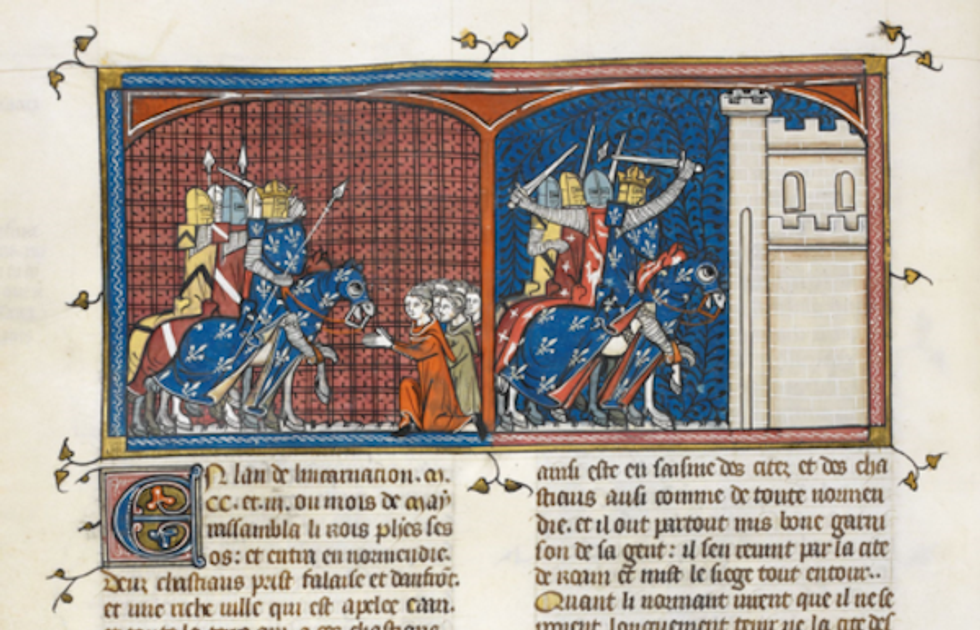 En lan de lincarnation. m.
CC. et. iii. ou mois de may
rassambla li rois phes ses
os: et entra en normendie.
Deux chastiaus prist falaise et danfrōt.
et une riche uille qui est apelee cam.
et toute la terre qui a ces chastiaus
ainsi este en saisine des citez et des cha
stiaus ausi comme de toute normen
die. et il out partout mis bone garni
son de sa gent: il sen reuint par la cite
de roam et mist le siege tout entour..
Quant li normant uirent que il ne se
poient longuement tenir ne la cite des